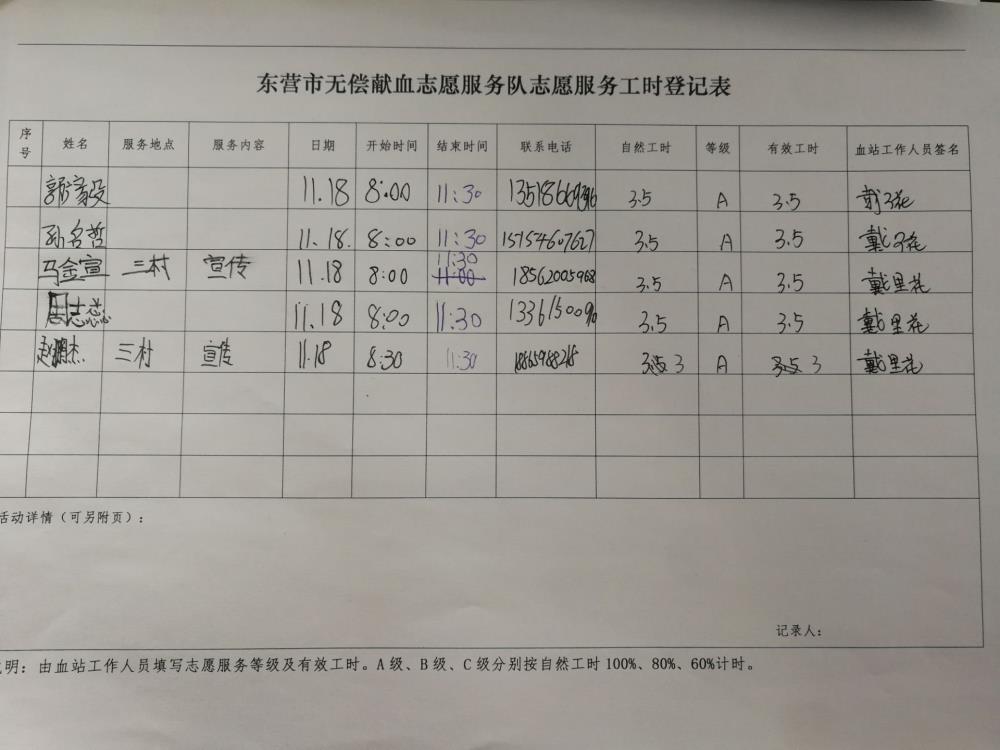 东营市无偿献血志愿服务队志愿服务工时登记表
序号 姓名 服务地点 服务内容 日期 开始时间 结束时间 联系电话 自然工时 等级 有效工时 血站工作人员签名
11.18 8:00 11:30 3.5 A 3.5
孙名哲 11.18. 8:00 11:30 15154607627 3.5 A 3.5
马金宣 三村 宣传 11.18 8:00 11:30 18562005968 3.5 A 3.5 戴里花
周志蕊 11.18 8:00 11:30 3.5 A 3.5 戴里花
赵鹏杰 三村 宣传 11.18 8:30 11:30 18865988218 3 A 3 戴里花
活动详情（可另附页）：
记录人：
明：由血站工作人员填写志愿服务等级及有效工时。A级、B级、C级分别按自然工时100%、80%、60%计时。